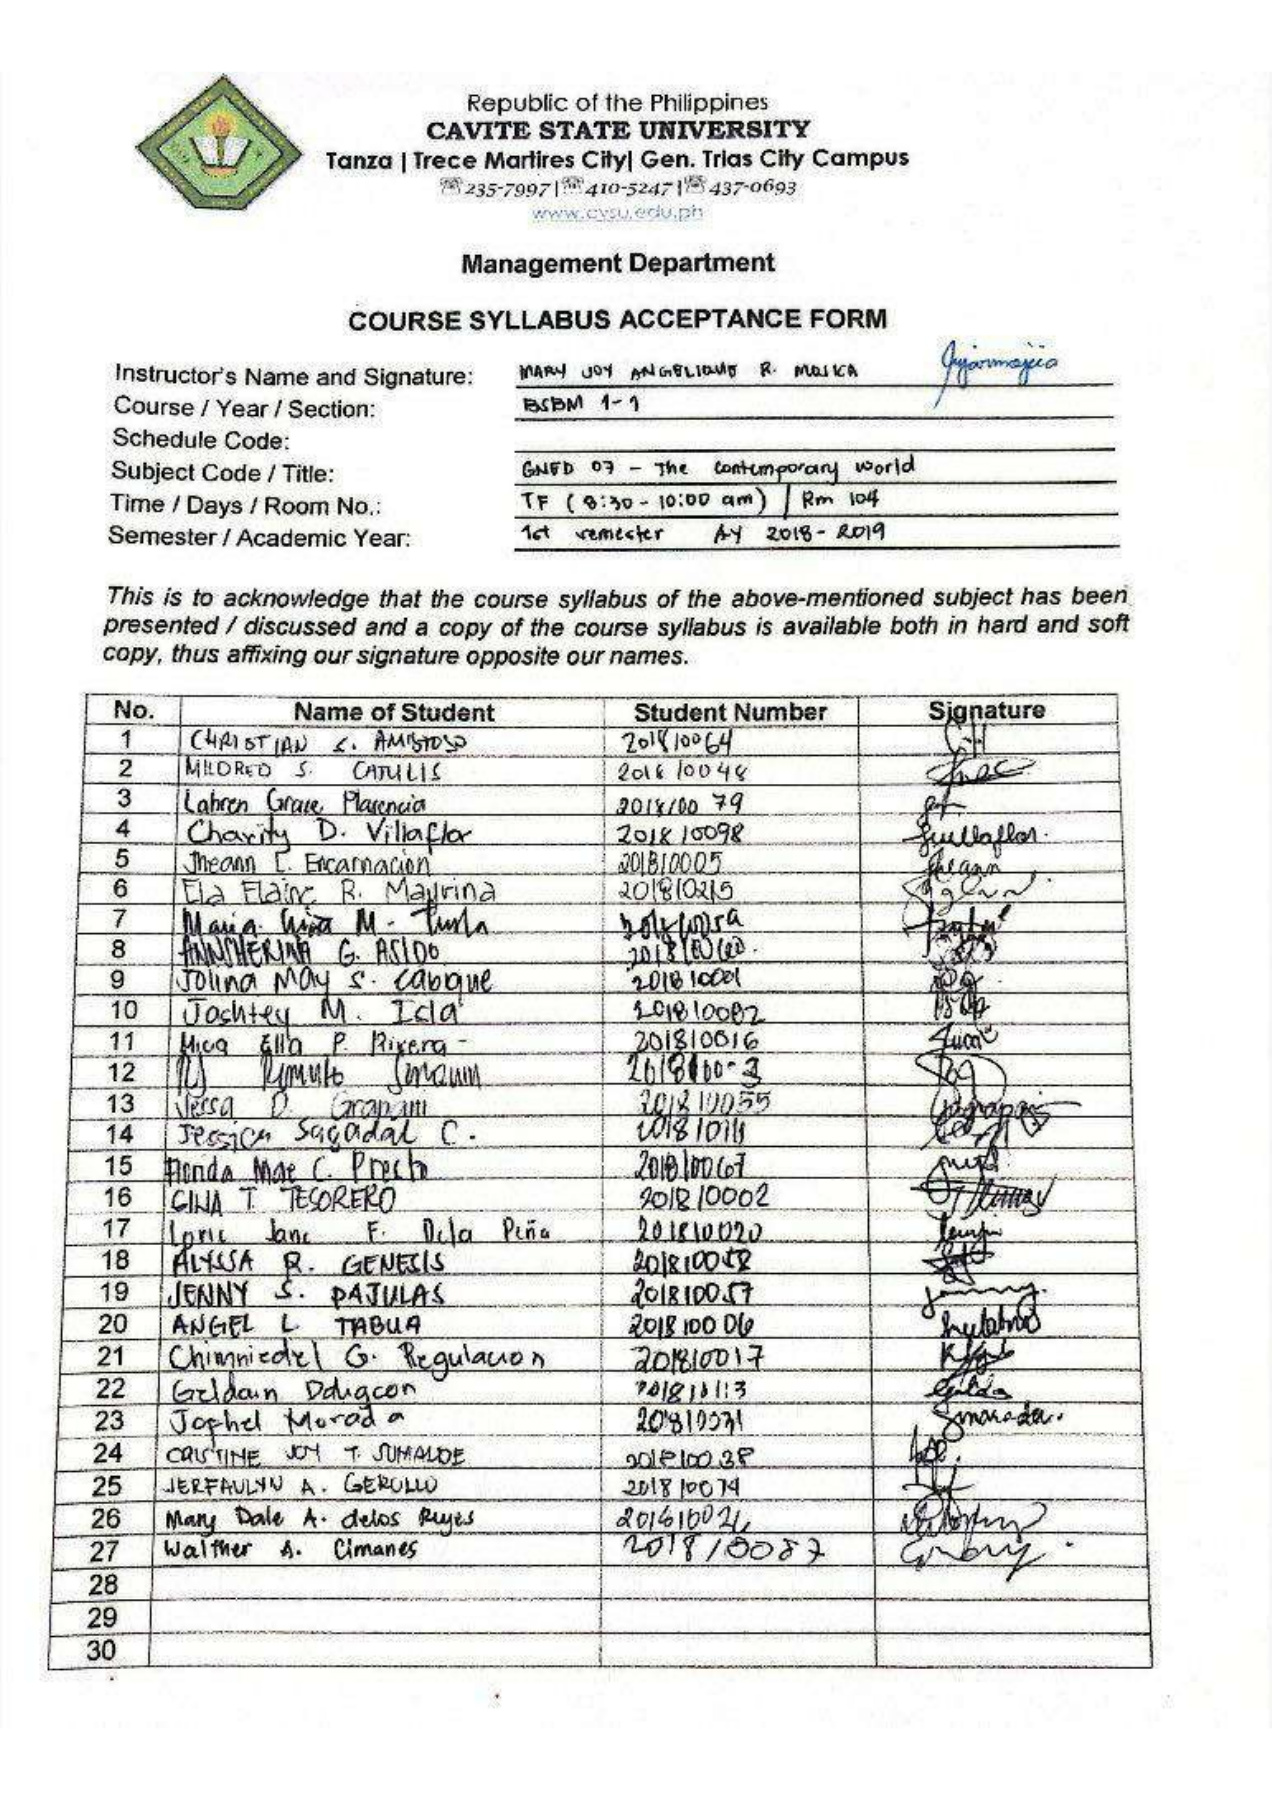 Republic of the Philippines
CAVITE STATE UNIVERSITY
Tanza | Trece Martires City| Gen. Trias City Campus
☏235-7997|☏410-5247|☏437-0693
www.cvsu.edu.ph
Management Department
COURSE SYLLABUS ACCEPTANCE FORM
Instructor's Name and Signature: MARY JOY ANGELIQUE R. MOJICA
Course / Year / Section: BSBM 1-1
Schedule Code:
Subject Code / Title: GNED 07 - The contemporary world
Time / Days / Room No.: TF (8:30-10:00 am) | Rm 104
Semester / Academic Year: 1st semester AY 2018-2019
This is to acknowledge that the course syllabus of the above-mentioned subject has been
presented / discussed and a copy of the course syllabus is available both in hard and soft
copy, thus affixing our signature opposite our names.
No. Name of Student Student Number Signature
1 CHRISTIAN S. 201810064
2 MILDRED S. CATULIS 201810048
3 Lahren Grace Plasencia 201810079
4 Charity D. Villaflor 201810098
5 Jheann C. Encarnacion 201810005
6 Ela Elaine R. 201810215
7 Maria M.
8 ANNSHERINA G. ASIDO
9 Jolina May S. Cabque
10 M. Isla 201810082
11 Mica Ella P. Rivera - 201810016
12
13 Jessa D. 201810055
14 Jessica Sagadal C.
15 Mae C. Presto 201810067
16 GINA T. TESORERO 201810002
17 Jane F. Dela Peña 201810020
18 ALYSSA R. GENESIS
19 JENNY S. PAJULAS 201810057
20 ANGEL L TABUA 201810006
21 Chimniedel G. Regulacion 201810017
22 201810113
23 Jophel Morada
24 CRISTINE JOY T. SUMALDE 201810038
25 JERFAULYN A. GEROLLO 201810074
26 Mary Dale A. delos Reyes
27 Walther A. Cimanes 201810087
28
29
30